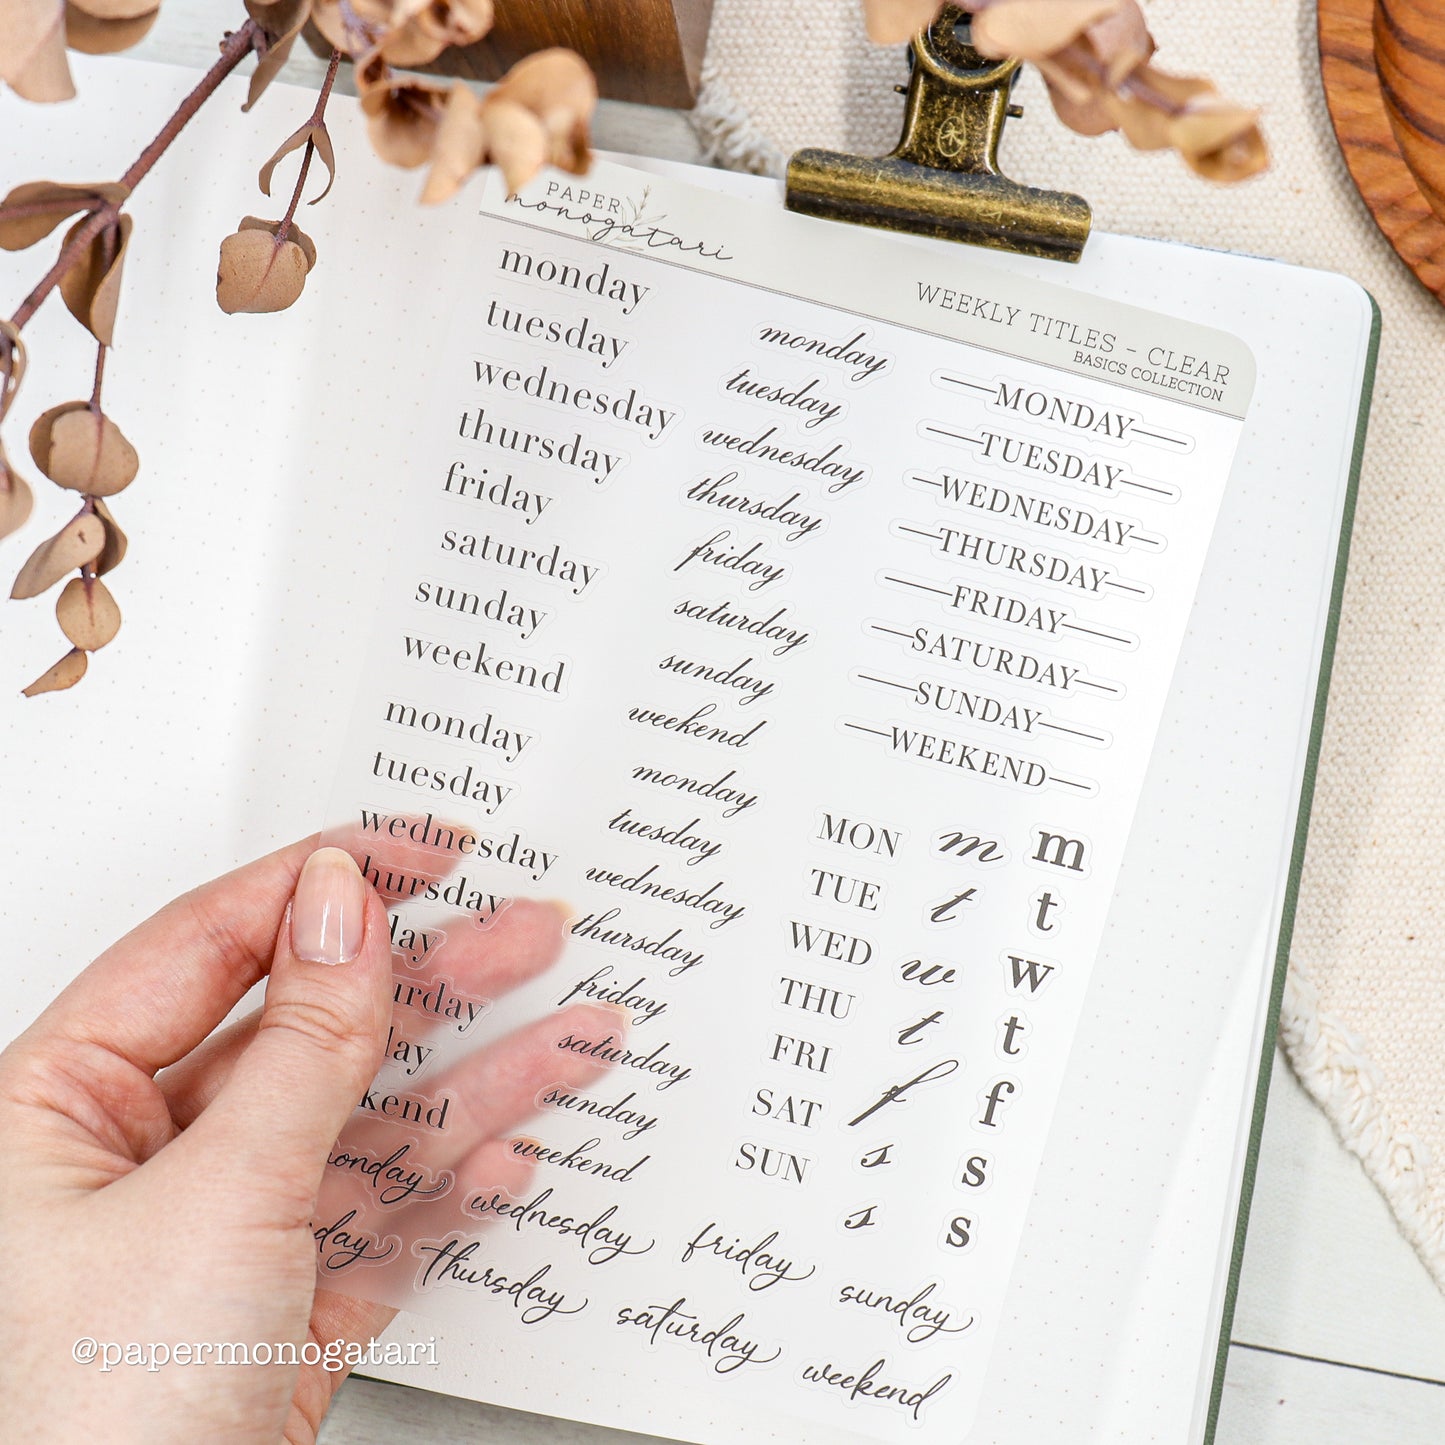 PAPER
monogatari
WEEKLY TITLES - CLEAR
BASICS COLLECTION
monday
tuesday
wednesday
thursday
friday
saturday
sunday
weekend
monday
tuesday
wednesday
thursday
friday
saturday
sunday
weekend
MONDAY
TUESDAY
WEDNESDAY
THURSDAY
FRIDAY
SATURDAY
SUNDAY
WEEKEND
monday
tuesday
wednesday
hursday
day
urday
day
kend
monday
tuesday
wednesday
thursday
friday
saturday
sunday
weekend
MON m m
TUE t t
WED w w
THU t t
FRI f f
SAT s s
SUN s s
monday wednesday friday sunday
day thursday saturday weekend
@papermonogatari